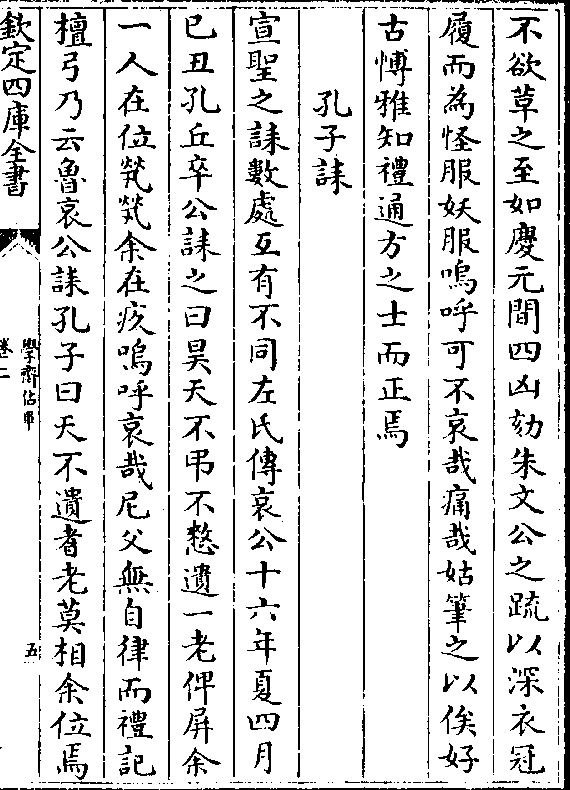 不欲草之至如慶元間四凶劾朱文公之䟽以深衣冠
履而為怪服妖服嗚呼可不哀哉痛哉姑筆之以俟好
古愽雅知禮通方之士而正焉
孔子誄
宣聖之誄數處互有不同左氏傳哀公十六年夏四月
已丑孔丘卒公誄之曰昊天不弔不憗遺一老俾屏余
一人在位煢煢余在疚嗚呼哀哉尼父無自律而禮記
檀弓乃云魯哀公誄孔子曰天不遺耆老莫相余位焉
欽定四庫全書
學齋佔畢
卷二
五